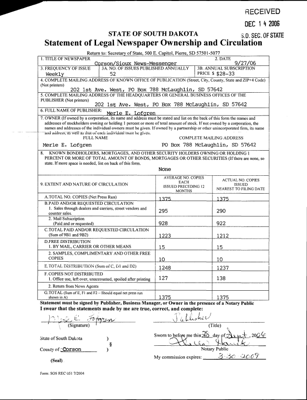 RECEIVED
DEC 14 2006
S.D. SEC. OF STATE
STATE OF SOUTH DAKOTA
Statement of Legal Newspaper Ownership and Circulation
Return to: Secretary of State, 500 E. Capitol, Pierre, SD 57501-5077
1. TITLE OF NEWSPAPER
Corson/Sioux News-Messenger
2. DATE
9/27/06
3. FREQUENCY OF ISSUE
Weekly
3A. NO. OF ISSUES PUBLISHED ANNUALLY
52
3B. ANNUAL SUBSCRIPTION
PRICE $ $28-33
4. COMPLETE MAILING ADDRESS OF KNOWN OFFICE OF PUBLICATION (Street, City, County, State and ZIP+4 Code)
(Not printers)
202 1st Ave. West, PO Box 788 McLaughlin, SD 57642
5. COMPLETE MAILING ADDRESS OF THE HEADQUARTERS OR GENERAL BUSINESS OFFICES OF THE
PUBLISHER (Not printers)
202 1st Ave. West, PO Box 788 McLaughlin, SD 57642
6. FULL NAME OF PUBLISHER:
Merle E. Lofgren
7. OWNER (If owned by a corporation, its name and address must be stated and list on the back of this form the names and
addresses of stockholders owning or holding 1 percent or more of total amount of stock. If not owned by a corporation, the
names and addresses of the individual owners must be given. If owned by a partnership or other unincorporated firm, its name
and address, as well as that of each individual must be given.
FULL NAME
COMPLETE MAILING ADDRESS
Merle E. Lofgren
PO Box 788 McLaughlin, SD 57642
8. KNOWN BONDHOLDERS, MORTGAGES, AND OTHER SECURITY HOLDERS OWNING OR HOLDING 1
PERCENT OR MORE OF TOTAL AMOUNT OF BONDS, MORTGAGES OR OTHER SECURITIES (If there are none, so
state. If more space is needed, list on back of this form.
None
9. EXTENT AND NATURE OF CIRCULATION
AVERAGE NO. COPIES
EACH
ISSUED PRECEDING 12
MONTHS
ACTUAL NO. COPIES
ISSUED
NEAREST TO FILING DATE
A. TOTAL NO. COPIES (Net Press Run)
1375
1375
B. PAID AND/OR REQUESTED CIRCULATION
1. Sales through dealers and carriers, street vendors and
counter sales.
295
290
2. Mail Subscription
(Paid and or requested)
928
922
C. TOTAL PAID AND/OR REQUESTED CIRCULATION
(Sum of 9B1 and 9B2)
1223
1212
D. FREE DISTRIBUTION
1. BY MAIL, CARRIER OR OTHER MEANS
15
15
2. SAMPLES, COMPLIMENTARY AND OTHER FREE
COPIES
10
10
E. TOTAL DISTRIBUTION (Sum of C, D1 and D2)
1248
1237
F. COPIES NOT DISTRIBUTED
1. Office use, left over, unaccounted, spoiled after printing
127
138
2. Return from News Agents
G. TOTAL (Sum of E, F1 and F2 - Should equal net press run
shown in A)
1375
1375
Statement must be signed by Publisher, Business Manager, or Owner in the presence of a Notary Public
I swear that the statements made by me are true, correct, and complete:
Merle E. Lofgren
Publisher
(Signature)
(Title)
State of South Dakota )
Sworn to before me this
day of Sept 2006
County of Corson )
Notary Public
(Seal)
My commission expires: